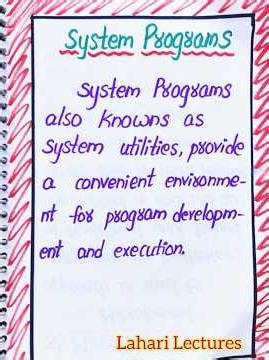 System Programs
System Programs
also knowns as
system utilities, provide
a convenient environme-
nt for program developm-
ent and execution.
Lahari Lectures